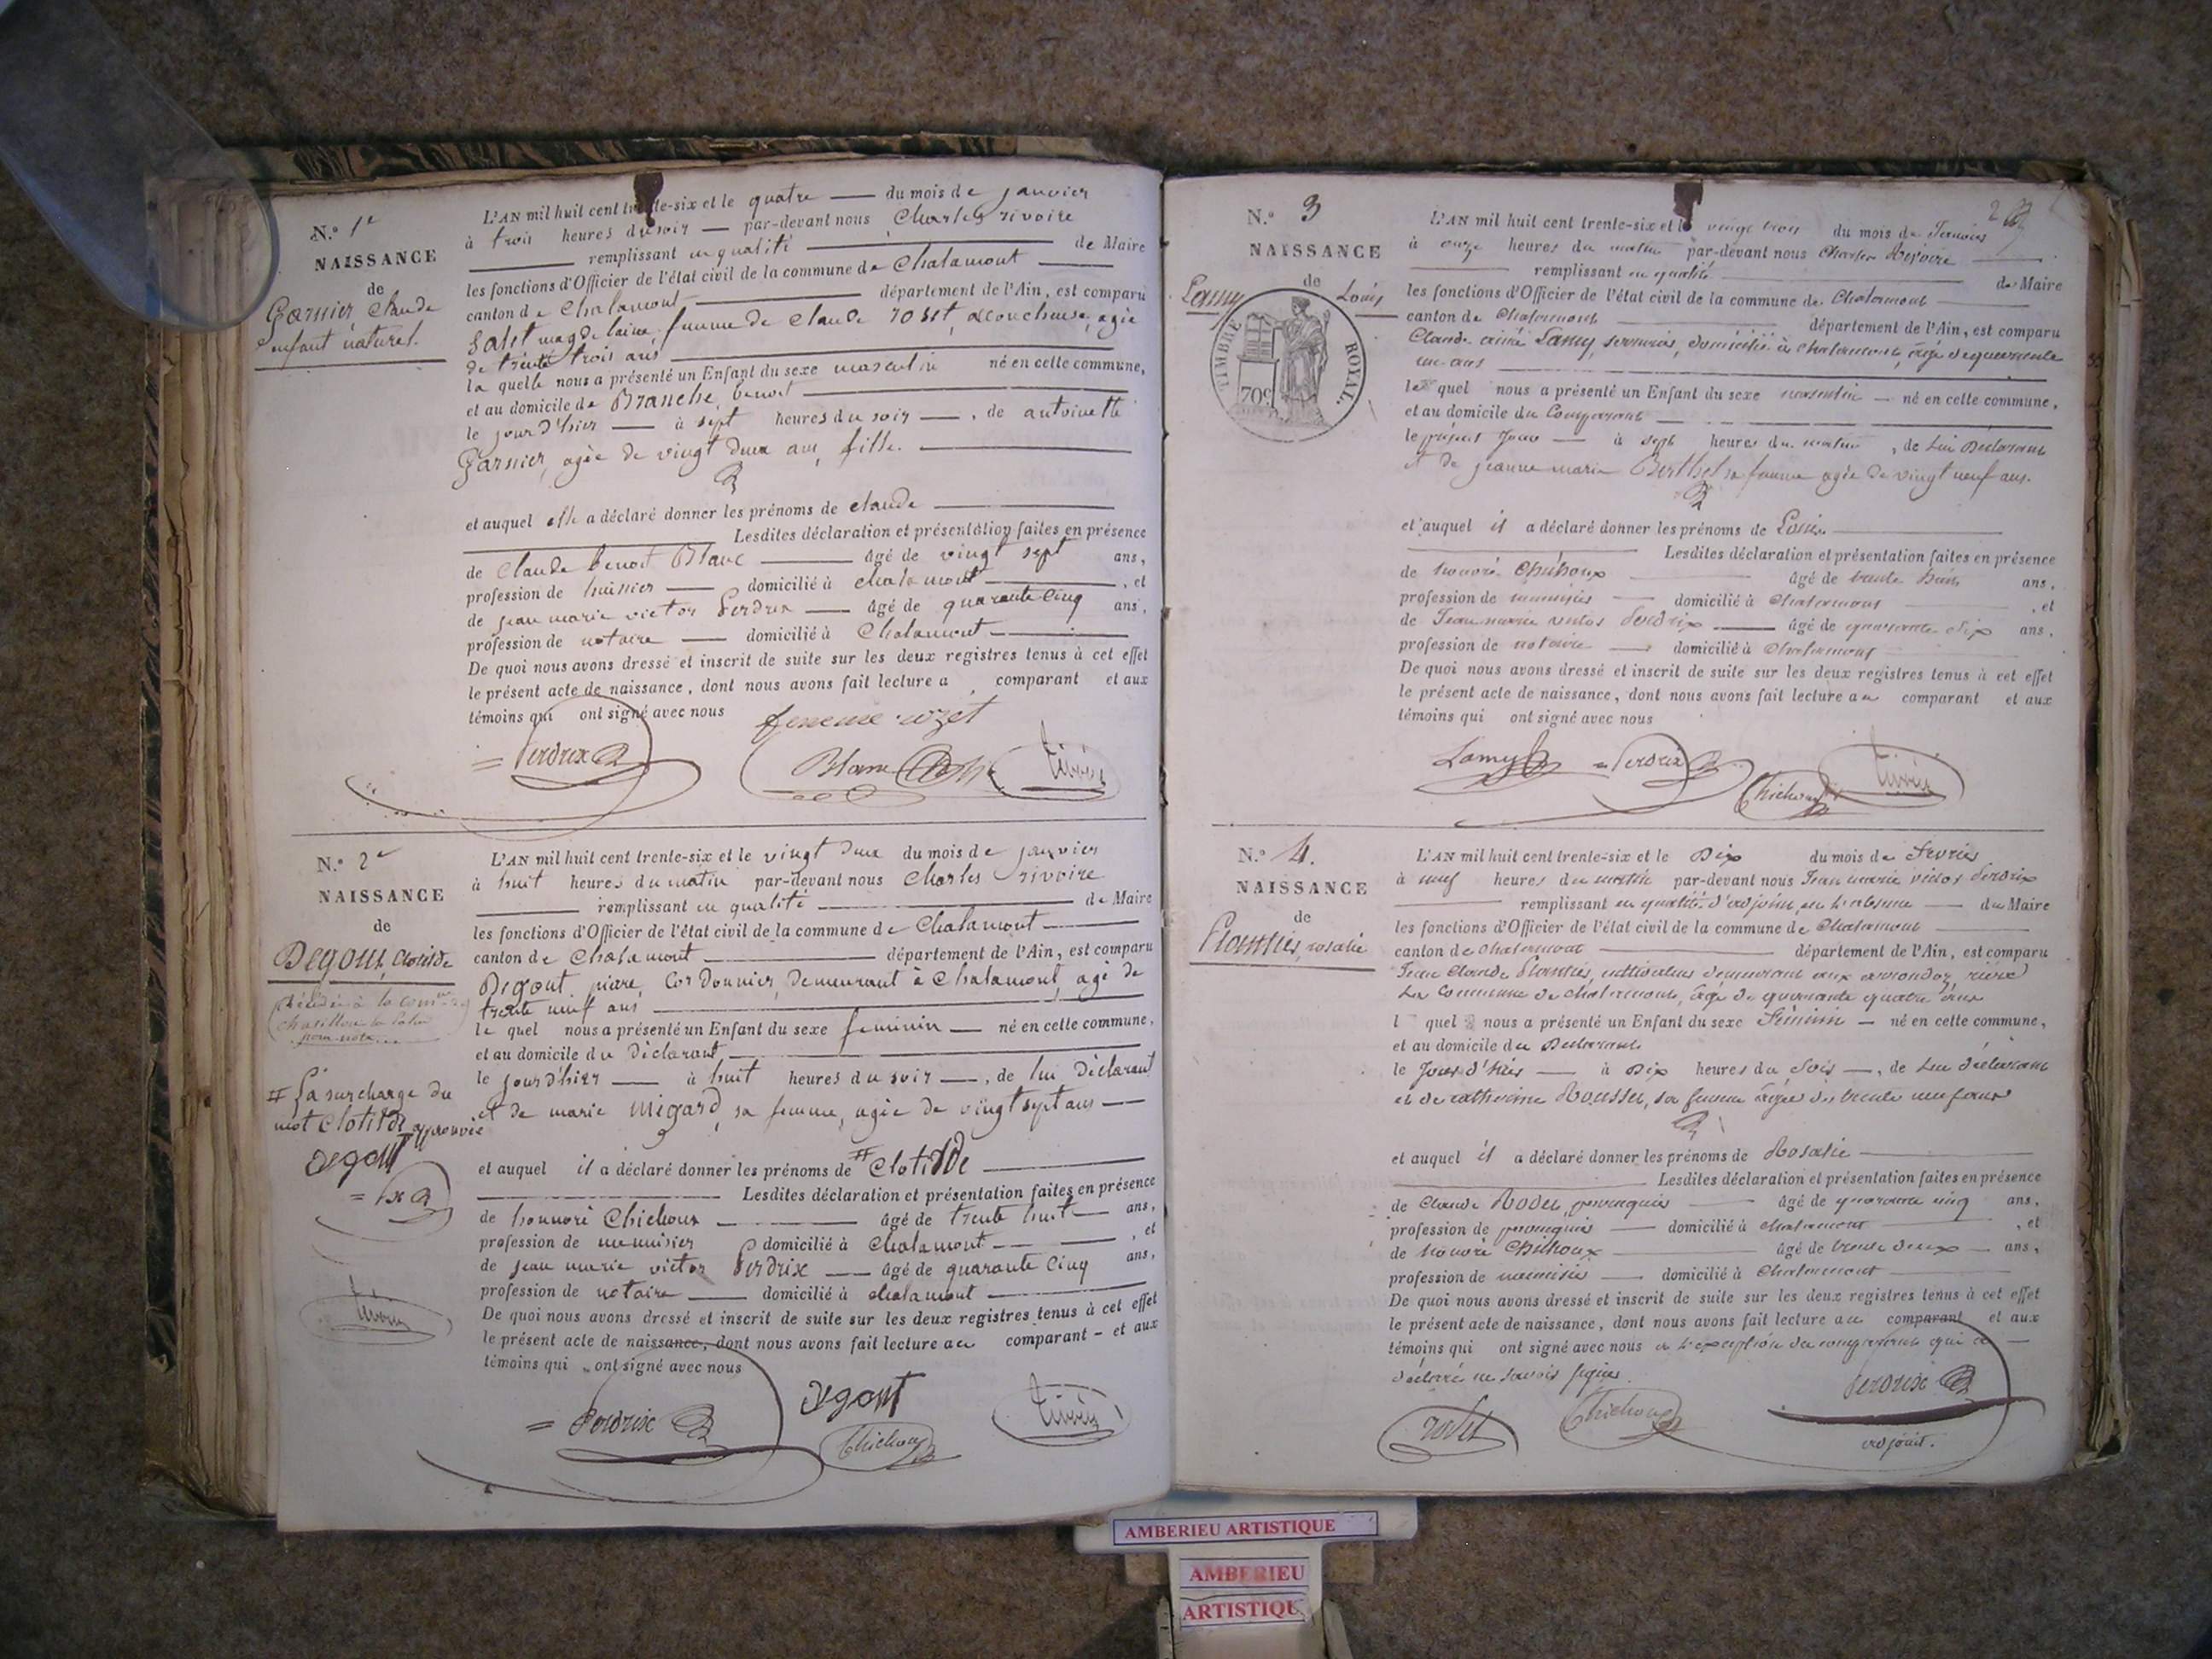 N.° 1er
NAISSANCE
de
Garnier, Claude
enfant naturel.
L'AN mil huit cent trente-six et le quatre du mois de janvier
à trois heures du soir par-devant nous Charles rivoire
remplissant en qualité de Maire
les fonctions d'Officier de l'état civil de la commune de Chalamont
canton de Chalamont département de l'Ain, est comparu
magdelaine, femme de Claude rozet, accoucheuse, agée
de trente trois ans
la quelle nous a présenté un Enfant du sexe masculin né en cette commune,
et au domicile de Branche, benoit
le jour d'hier à sept heures du soir, de antoinette
Garnier, agée de vingt deux ans, fille.
et auquel elle a déclaré donner les prénoms de claude
Lesdites déclaration et présentation faites en présence
de Claude benoit Blanc âgé de vingt sept ans,
profession de huissier domicilié à chalamont, et
de jean marie victor Perdrix âgé de quarante cinq ans,
profession de notaire domicilié à Chalamont
De quoi nous avons dressé et inscrit de suite sur les deux registres tenus à cet effet
le présent acte de naissance, dont nous avons fait lecture a comparant et aux
témoins qui ont signé avec nous
femme rozet
Perdrix
Blanc
N.° 2e
NAISSANCE
de
Degout, Clotilde
# La surcharge du
mot Clotilde approuvée
Degout
L'AN mil huit cent trente-six et le vingt deux du mois de janvier
à huit heures du matin par-devant nous Charles rivoire
remplissant en qualité de Maire
les fonctions d'Officier de l'état civil de la commune de Chalamont
canton de Chalamont département de l'Ain, est comparu
Degout, piere, Cordonnier, demeurant à Chalamont, agé de
trente neuf ans
le quel nous a présenté un Enfant du sexe feminin né en cette commune,
et au domicile du déclarant
le jour d'hier à huit heures du soir, de lui déclarant
et de marie migard, sa femme, agée de vingt sept ans
et auquel il a déclaré donner les prénoms de # Clotilde
Lesdites déclaration et présentation faites en présence
de honnoré Chichoux âgé de trente huit ans,
profession de menuisier domicilié à chalamont, et
de jean marie victor Perdrix âgé de quarante cinq ans,
profession de notaire domicilié à chalamont
De quoi nous avons dressé et inscrit de suite sur les deux registres tenus à cet effet
le présent acte de naissance, dont nous avons fait lecture au comparant et aux
témoins qui ont signé avec nous
Degout
Perdrix
Chichoux
N.° 3
NAISSANCE
de
Lamy Louis
TIMBRE ROYAL.
70c
L'AN mil huit cent trente-six et le vingt trois du mois de Janvier
à onze heures du matin par-devant nous Charles Rivoire
remplissant en qualité de Maire
les fonctions d'Officier de l'état civil de la commune de Chalamont
canton de Chalamont département de l'Ain, est comparu
Claude aimé Lamy, serrurier, domicilié à Chalamont, âgé de quarante
un ans
le quel nous a présenté un Enfant du sexe masculin né en cette commune,
et au domicile du Comparant
le présent Jour à sept heures du matin, de lui Déclarant
et de jeanne marie Berthet sa femme agée de vingt neuf ans.
et auquel il a déclaré donner les prénoms de Louis
Lesdites déclaration et présentation faites en présence
de honoré Chichoux âgé de trente huit ans,
profession de menuisier domicilié à Chalamont, et
de Jean marie victor Perdrix âgé de quarante six ans,
profession de notaire domicilié à Chalamont
De quoi nous avons dressé et inscrit de suite sur les deux registres tenus à cet effet
le présent acte de naissance, dont nous avons fait lecture au comparant et aux
témoins qui ont signé avec nous
Lamy
Perdrix
Chichoux
N.° 4.
NAISSANCE
de
Plantier, rosalie
L'AN mil huit cent trente-six et le Dix du mois de Fevrier
à neuf heures du matin par-devant nous Jean marie victor Perdrix
remplissant en qualité d'adjoint, en l'absence du Maire
les fonctions d'Officier de l'état civil de la commune de Chalamont
canton de Chalamont département de l'Ain, est comparu
Jean Claude Plantier, cultivateur, demeurant aux
la Commune de Chalamont, âgé de quarante quatre ans
l quel nous a présenté un Enfant du sexe Féminin né en cette commune,
et au domicile du Déclarant
le Jour d'hier à Dix heures du Soir, de lui déclarant
et de catherine Rousset, sa femme âgée de trente neuf ans
et auquel il a déclaré donner les prénoms de Rosalie
Lesdites déclaration et présentation faites en présence
de Claude Rodet, perruquier âgé de quarante cinq ans,
profession de perruquier domicilié à chalamont, et
de honoré Chichoux âgé de trente deux ans,
profession de menuisier domicilié à Chalamont
De quoi nous avons dressé et inscrit de suite sur les deux registres tenus à cet effet
le présent acte de naissance, dont nous avons fait lecture au comparant et aux
témoins qui ont signé avec nous à l'exception du comparant qui a
déclaré ne savoir signer.
rodet
Chichoux
Perdrix
adjoint.
AMBERIEU ARTISTIQUE
AMBERIEU
ARTISTIQU